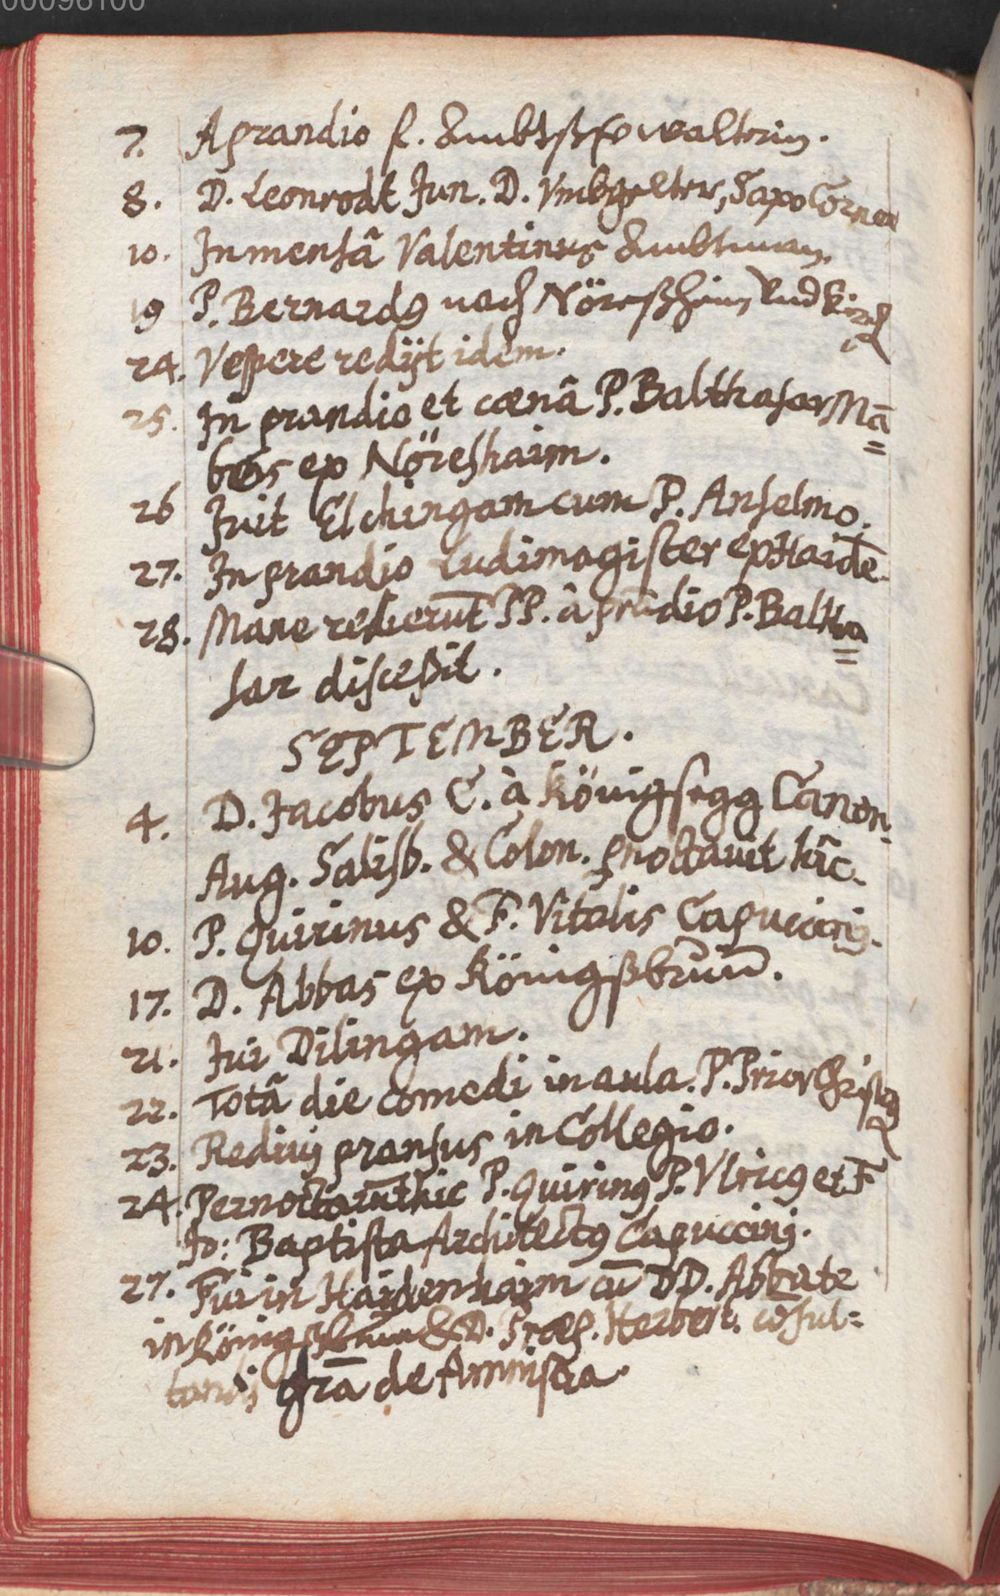 00096100
7. A prandio f. Ambtsverwalterin.
8. D. Leonrodt Jun. D. Vmbgelter, Sapo Cornea
10. In mensâ Valentinus Ambtman.
19 P. Bernardꝰ nach Nöreßheim vnd Kirch
24. Vespere redijt idem.
25. In prandio et cœnâ P. Balthasar Mā=
bos ex Nöreshaim.
26 Iuit Elchingam cum P. Anselmo.
27. In prandio Ludimagister ex Haidē.
28. Mane redierūt PP. à prādio P. Baltha=
sar discessit.
SEPTEMBER.
4. D. Jacobus C. à Königsegg Canon.
Aug. Salisb. & Colon. pnoctauit hîc.
10. P. Quirinus & F. Vitalis Capucinj.
17. D. Abbas ex Königßbrūn.
21. Iui Dilingam.
22. Totâ die comedi in aula. P. Prior
23. Rediuj pransus in Collegio.
24. Pernoctarūt hic P. Quirinꝰ P. Vlricꝰ et F
Jo: Baptista Architectꝰ Capuccinj.
27. Fui in Haidenhaim cū DD. Abbate
in Königßbrun & D. Præp. Herbert. cōsul=
tandj grā de Amnistia